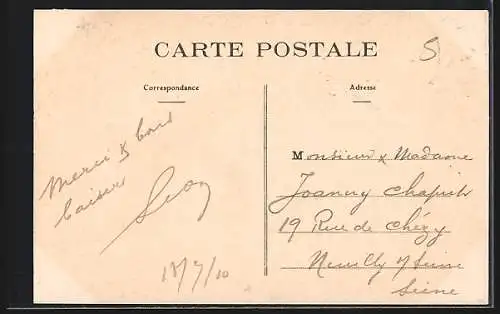 CARTE POSTALE
5
Correspondance
Adresse
Merci & bons
baisers
Monsieur & Madame
Joanny Chapuis
19 Rue de Chézy
Neuilly s/ Seine
Seine
18/7/10